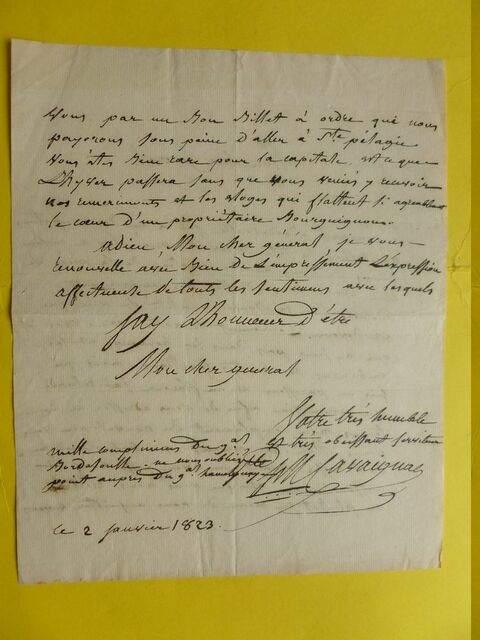 vous par un bon billet à ordre que nous
payerons sous peine d'aller à Ste pélagie
vous êtes bien rare pour la capitale, est ce que
L'hyver passera sans que vous veniés y recevoir
nos remerciments et les éloges qui flattent si agreablement
le cœur d'un propriétaire Bourguignon.
adieu Mon cher général je vous
renouvelle avec bien de L'empressement L'expression
affectueuse de touts les sentimens avec lesquels
J'ay L'honneur d'être
Mon cher general
Votre très humble
et très obeissant serviteur
Cavaignac
mille complimens du gal
Bordesoulle, ne nous oubliés
point auprès du gal
le 2 janvier 1823.